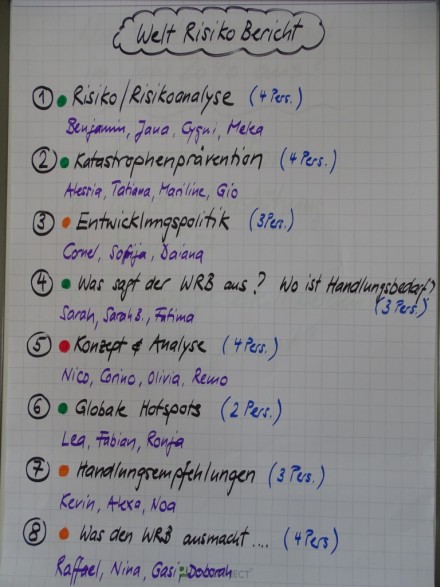 Welt Risiko Bericht
① Risiko/Risikoanalyse (4 Pers.)
Benjamin, Jana, Cygni, Melea
② Katastrophenprävention (4 Pers.)
Alessia, Tatiana, Mariline, Gio
③ Entwicklungspolitik (3 Pers.)
Cornel, Sofija, Daiana
④ Was sagt der WRB aus? Wo ist Handlungsbedarf?
(3 Pers.)
Sarah, Sarah B., Fatima
⑤ Konzept & Analyse (4 Pers.)
Nico, Corino, Olivia, Remo
⑥ Globale Hotspots (2 Pers.)
Lea, Fabian, Ronja
⑦ Handlungsempfehlungen (3 Pers.)
Kevin, Alexa, Noa
⑧ Was den WRB ausmacht.... (4 Pers)
Raffael, Nina, Gasi, Deborah